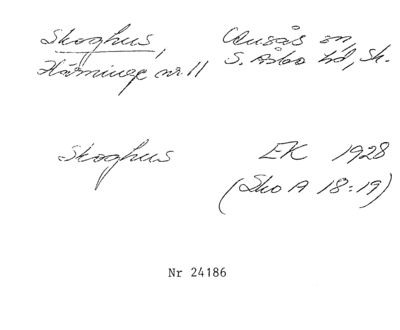 Skoghus, Ausås sn,
Härninge nr 11 S. Åsbo hd, Sk.
Skoghus EK 1928
(Sko A 18:19)
Nr 24186